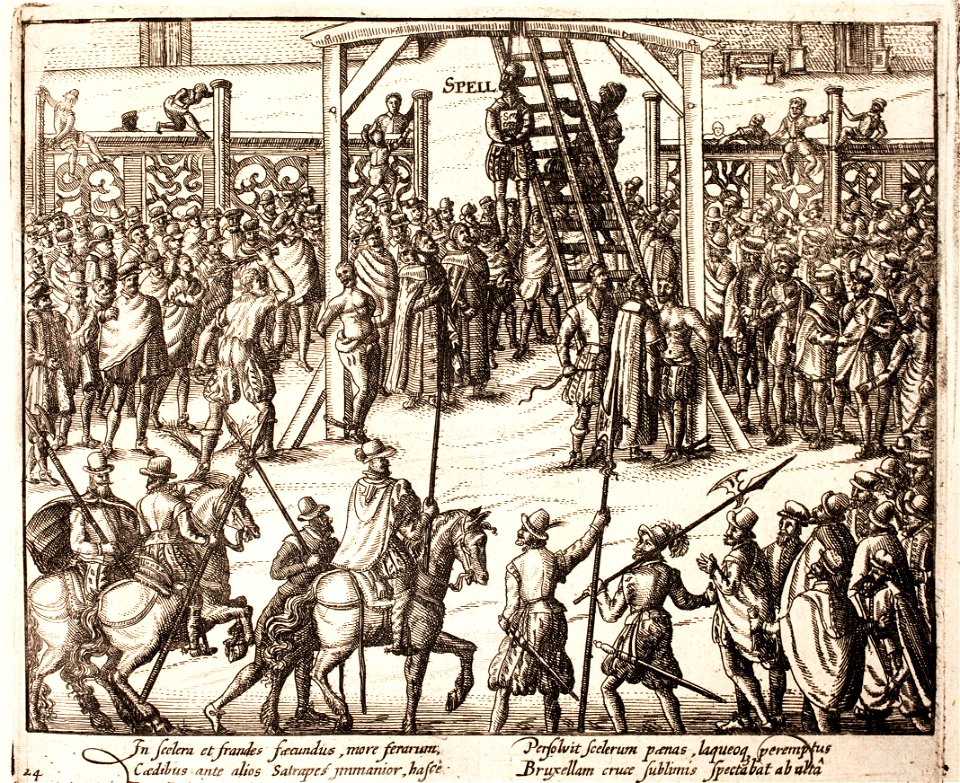 SPELL
In scelera et fraudes fæcundus, more ferarum,
Cædibus ante alios Satrapes immanior, hasce
Persolvit scelerum pænas, laqueoq. peremptus
Bruxellam cruce sublimis spectabat ab altâ
24